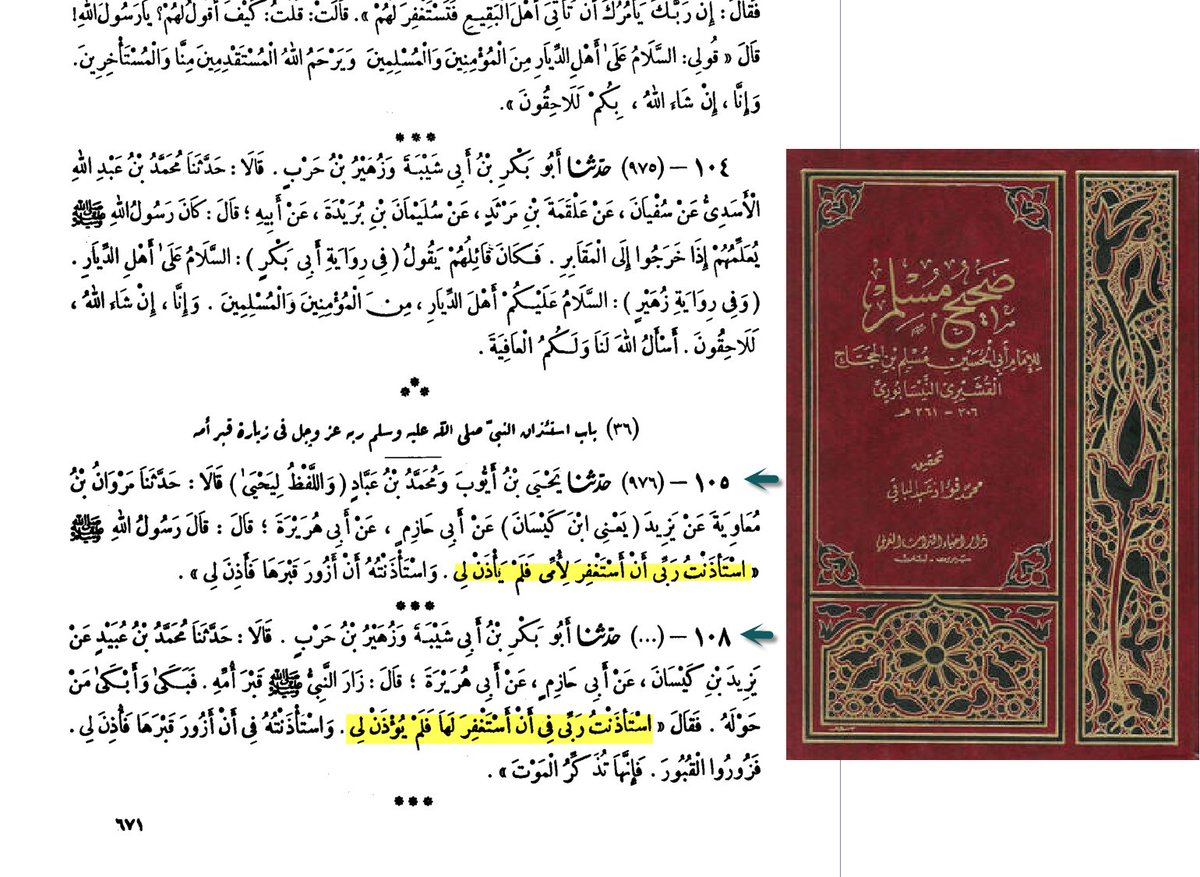 فَقَالَ : إِنَّ رَبَّكَ يَأْمُرُكَ أَنْ تَأْتِىَ أَهْلَ الْبَقِيعِ فَتَسْتَغْفِرَ لَهُمْ » . قَالَتْ : قُلْتُ : كَيْفَ أَقُولُ لَهُمْ ؟ يَا رَسُولَ اللهِ !
قَالَ « قُولِى : السَّلَامُ عَلَىٰ أَهْلِ الدِّيَارِ مِنَ الْمُؤْمِنِينَ وَالْمُسْلِمِينَ وَيَرْحَمُ اللهُ الْمُسْتَقْدِمِينَ مِنَّا وَالْمُسْتَأْخِرِينَ .
وَإِنَّا ، إِنْ شَاءَ اللهُ ، بِكُمْ لَلَاحِقُونَ » .
***
١٠٤ – (٩٧٥) حدّثنا أَبُو بَكْرِ بْنُ أَبِى شَيْبَةَ وَزُهَيْرُ بْنُ حَرْبٍ . قَالَا : حَدَّثَنَا مُحَمَّدُ بْنُ عَبْدِ اللهِ
الْأَسَدِىُّ عَنْ سُفْيَانَ ، عَنْ عَلْقَمَةَ بْنِ مَرْثَدٍ ، عَنْ سُلَيْمَانَ بْنِ بُرَيْدَةَ ، عَنْ أَبِيهِ ؛ قَالَ : كَانَ رَسُولُ اللهِ ﷺ
يُعَلِّمُهُمْ إِذَا خَرَجُوا إِلَى الْمَقَابِرِ . فَكَانَ قَائِلُهُمْ يَقُولُ ( فِى رِوَايَةِ أَبِى بَكْرٍ ) : السَّلَامُ عَلَىٰ أَهْلِ الدِّيَارِ .
( وَفِى رِوَايَةِ زُهَيْرٍ ) : السَّلَامُ عَلَيْكُمْ أَهْلَ الدِّيَارِ ، مِنَ الْمُؤْمِنِينَ وَالْمُسْلِمِينَ . وَإِنَّا ، إِنْ شَاءَ اللهُ ،
لَلَاحِقُونَ . أَسْأَلُ اللهَ لَنَا وَلَكُمُ الْعَافِيَةَ .
***
(٣٦) باب استئذان النبىّ صلى الله عليه وسلم ربه عز وجل فى زيارة قبر أمه
١٠٥ – (٩٧٦) حدّثنا يَحْيَىٰ بْنُ أَيُّوبَ وَمُحَمَّدُ بْنُ عَبَّادٍ ( وَاللَّفْظُ لِيَحْيَىٰ ) قَالَا : حَدَّثَنَا مَرْوَانُ بْنُ
مُعَاوِيَةَ عَنْ يَزِيدَ ( يَعْنِى ابْنَ كَيْسَانَ ) عَنْ أَبِى حَازِمٍ ، عَنْ أَبِى هُرَيْرَةَ ؛ قَالَ : قَالَ رَسُولُ اللهِ ﷺ
« اسْتَأْذَنْتُ رَبِّى أَنْ أَسْتَغْفِرَ لِأُمِّى فَلَمْ يَأْذَنْ لِى . وَاسْتَأْذَنْتُهُ أَنْ أَزُورَ قَبْرَهَا فَأَذِنَ لِى » .
***
١٠٨ – (...) حدّثنا أَبُو بَكْرِ بْنُ أَبِى شَيْبَةَ وَزُهَيْرُ بْنُ حَرْبٍ . قَالَا : حَدَّثَنَا مُحَمَّدُ بْنُ عُبَيْدٍ عَنْ
يَزِيدَ بْنِ كَيْسَانَ ، عَنْ أَبِى حَازِمٍ ، عَنْ أَبِى هُرَيْرَةَ ؛ قَالَ : زَارَ النَّبِىُّ ﷺ قَبْرَ أُمِّهِ . فَبَكَىٰ وَأَبْكَىٰ مَنْ
حَوْلَهُ . فَقَالَ « اسْتَأْذَنْتُ رَبِّى فِى أَنْ أَسْتَغْفِرَ لَهَا فَلَمْ يُؤْذَنْ لِى . وَاسْتَأْذَنْتُهُ فِى أَنْ أَزُورَ قَبْرَهَا فَأُذِنَ لِى .
فَزُورُوا الْقُبُورَ . فَإِنَّهَا تُذَكِّرُ الْمَوْتَ » .
***
٦٧١
صَحِيحُ مُسْلِمٍ
لِلإِمَامِ أَبِي الْحُسَيْنِ مُسْلِمِ بْنِ الْحَجَّاجِ
الْقُشَيْرِيِّ النَّيْسَابُورِيِّ
٢٠٦ - ٢٦١ هـ
تحقيق
محمد فؤاد عبد الباقي
دار إحياء التراث العربي
بيروت - لبنان